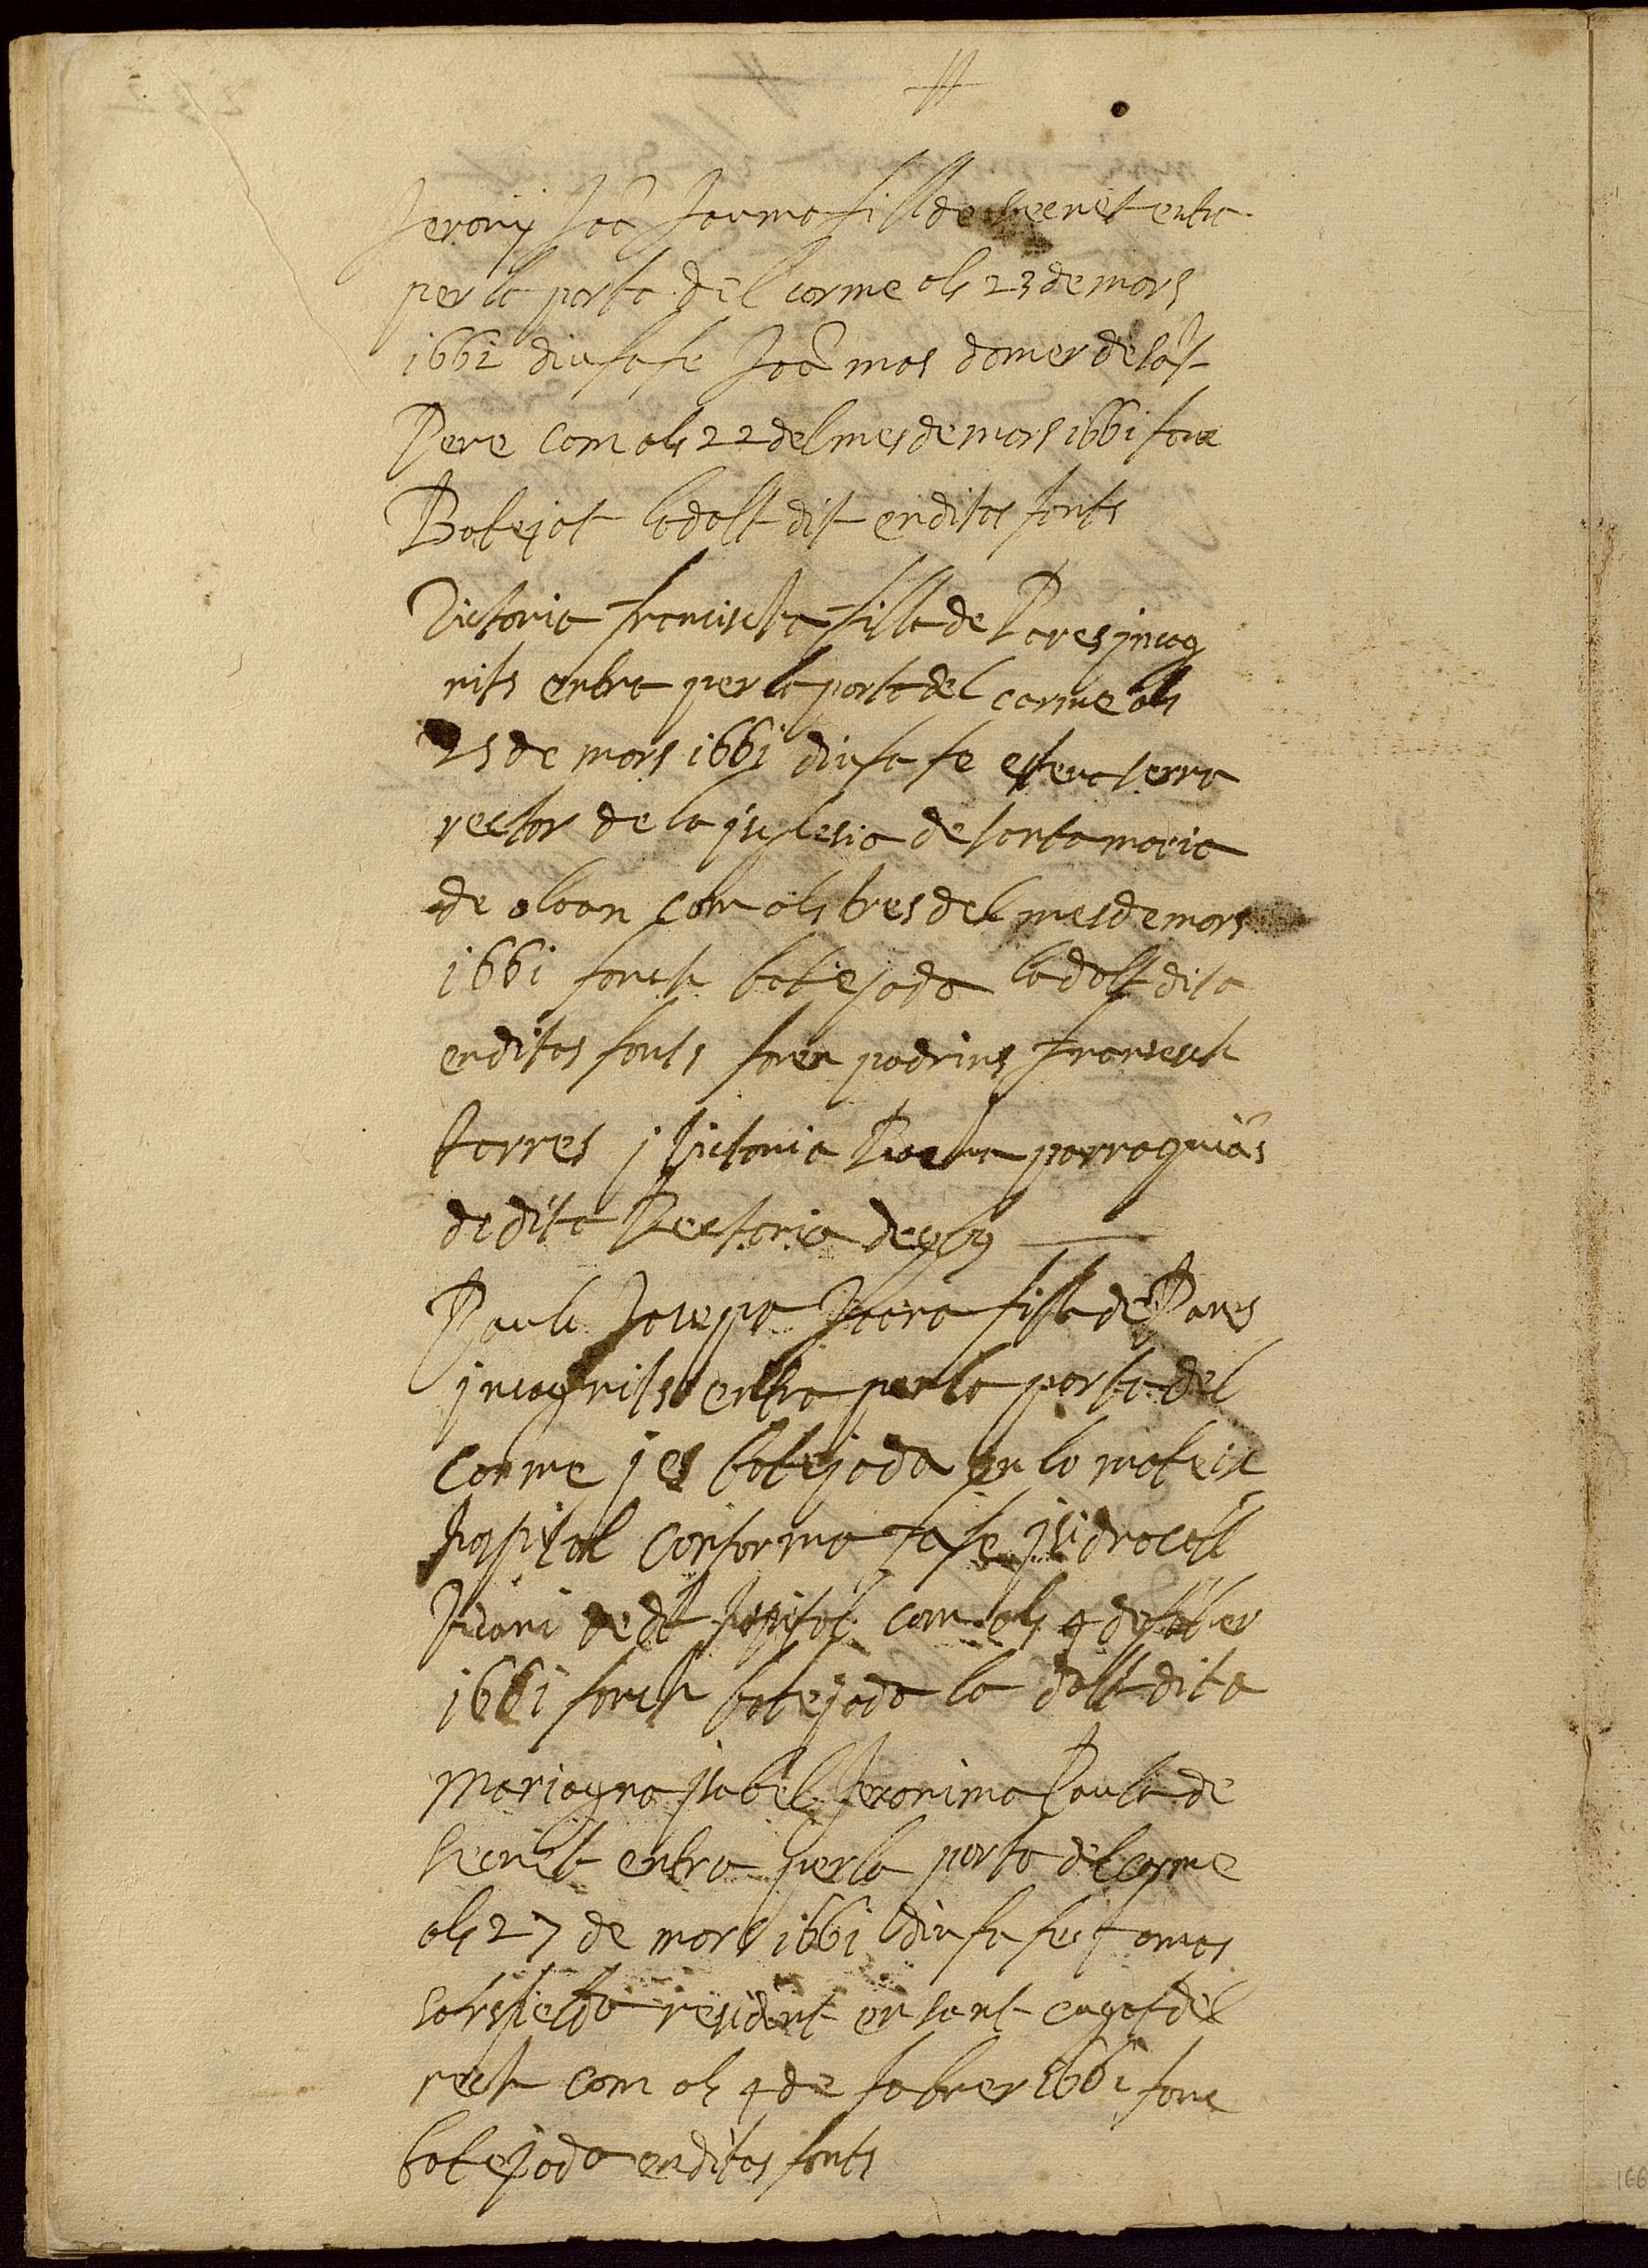 Jerony Joã Jauma fill de secret entra
per la porta del carme als 23 de mars
1661 diu sa fe Joã mas domer de sãt
Pere com als 22 del mes de mars 1661 fonc
Batejat lo dalt dit en ditas fonts
Victoria francischa filla de Pares incog
nits entra per la porta del carme als
25 de mars 1661 diu sa fe esteva serra
rector de la iglesia de santa maria
de oloan com als tres del mes de mars
1661 fonch batejada la dalt dita
en ditas fonts foren padrins fransech
torres j Victoria parroquiãs
de dita Rectoria
Paula Joseppa filla de Pares
incognits entra per la porta del
carme j es batejada en lo mateix
hospital conforma sa fe
Vicari de dt hospital com als 4 de
1661 fonch batejada la dalt dita
Mariagna isabel Jeronima Paula de
secret entra per la porta del carme
als 27 de mars 1661 diu sa fe tomas
resident en sant cugat del
rech com als 4 de fabrer 1661 fonc
batejada en ditas fonts